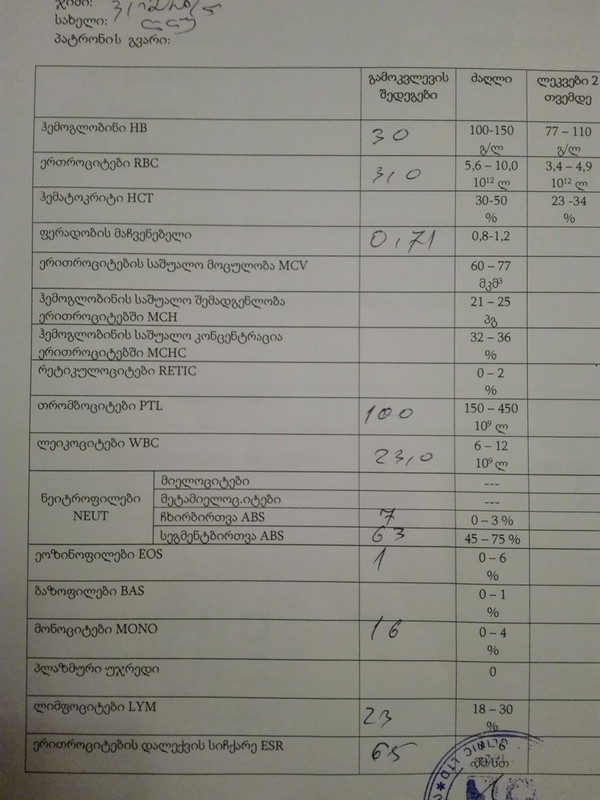 სახელი:
პატრონის გვარი:
გამოკვლევის შედეგები ძაღლი ლეკვები 2 თვემდე
ჰემოგლობინი HB 30 100-150 გ/ლ 77 – 110 გ/ლ
ერთროციტები RBC 3,0 5,6 – 10,0 10¹² ლ 3,4 – 4,9 10¹² ლ
ჰემატოკრიტი HCT 30-50 % 23 -34 %
ფერადობის მაჩვენებელი 0,71 0,8-1,2
ერითროციტების საშუალო მოცულობა MCV 60 – 77 მკმ³
ჰემოგლობინის საშუალო შემადგენლობა
ერითროციტებში MCH 21 – 25 პგ
ჰემოგლობინის საშუალო კონცენტრაცია
ერითროციტებში MCHC 32 – 36 %
რეტიკულოციტები RETIC 0 – 2 %
თრომბოციტები PTL 100 150 – 450 10⁹ ლ
ლეიკოციტები WBC 23,0 6 – 12 10⁹ ლ
ნეიტროფილები NEUT
მიელოციტები ---
მეტამიელოც.იტები ---
ჩხირბირთვა ABS 7 0 – 3 %
სეგმენტბირთვა ABS 63 45 – 75 %
ეოზინოფილები EOS 1 0 – 6 %
ბაზოფილები BAS 0 – 1 %
მონოციტები MONO 16 0 – 4 %
პლაზმური უჯრედი 0
ლიმფოციტები LYM 23 18 – 30 %
ერითროციტების დალექვის სიჩქარე ESR 65 6 მმ/სთ